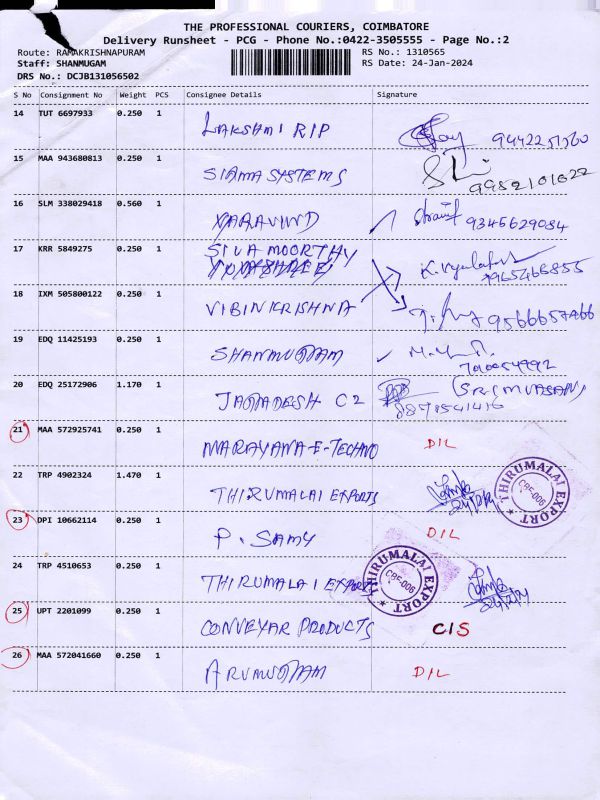 THE PROFESSIONAL COURIERS, COIMBATORE
Delivery Runsheet - PCG - Phone No.:0422-3505555 - Page No.:2
Route: RAMAKRISHNAPURAM
RS No.: 1310565
Staff: SHANMUGAM
RS Date: 24-Jan-2024
DRS No.: DCJB131056502
S No Consignment No Weight PCS Consignee Details Signature
14 TUT 6697933 0.250 1 LAKSHMI RIP
15 MAA 943680813 0.250 1 SIAMA SYSTEMS 9952101022
16 SLM 338029418 0.560 1 ARAVIND 9345629084
17 KRR 5849275 0.250 1 SIVA MOORTHY
18 IXM 505800122 0.250 1 VIBINKRISHNA
19 EDQ 11425193 0.250 1 SHANMUGAM
20 EDQ 25172906 1.170 1 JAGADESH C2 (SRINIVASAN)
8871541416
21 MAA 572925741 0.250 1 NARAYANA-E-TECHNO DIL
22 TRP 4902324 1.470 1 THIRUMALAI EXPORTS
THIRUMALAI EXPORT
CBE-006
23 DPI 10662114 0.250 1 P. SAMY DIL
24 TRP 4510653 0.250 1 THIRUMALAI EXPORTS
THIRUMALAI EXPORT
CBE-006
25 UPT 2201099 0.250 1 CONVEYAR PRODUCTS CIS
26 MAA 572041660 0.250 1 ARUMUGAM DIL